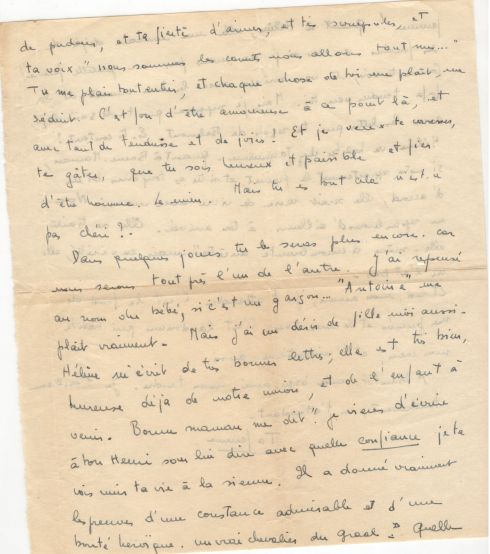 de pudeur, et ta fierté d'aimer, et tes scrupules, et
ta voix "nous sommes les nous allons tout nus..."
Tu me plais tout entier, et chaque chose de toi me plaît me
séduit. C'est fou d'être amoureuse à ce point là, et
avec tant de tendresse et de joies! Et je veux te caresser,
te gâter, que tu sois heureux et paisible et fier
d'être homme. Le mien. Mais tu es tout cela n'est-ce
pas chéri?.
Dans quelques jours tu le seras plus encore. car
nous serons tout près l'un de l'autre. J'ai repensé
au nom du bébé, si c'est un garçon... "Antoine" me
plaît vraiment. Mais j'ai un désir de fille moi aussi.
Hélène m'écrit de très bonnes lettres; elle est très bien,
heureuse déjà de notre union, et de l'enfant à
venir. Bonne maman me dit "je viens d'écrire
à ton Henri sans lui dire avec quelle confiance je te
vois unir ta vie à la sienne. Il a donné vraiment
les preuves d'une constance admirable et d'une
bonté héroïque. un vrai chevalier du Graal". Quelle